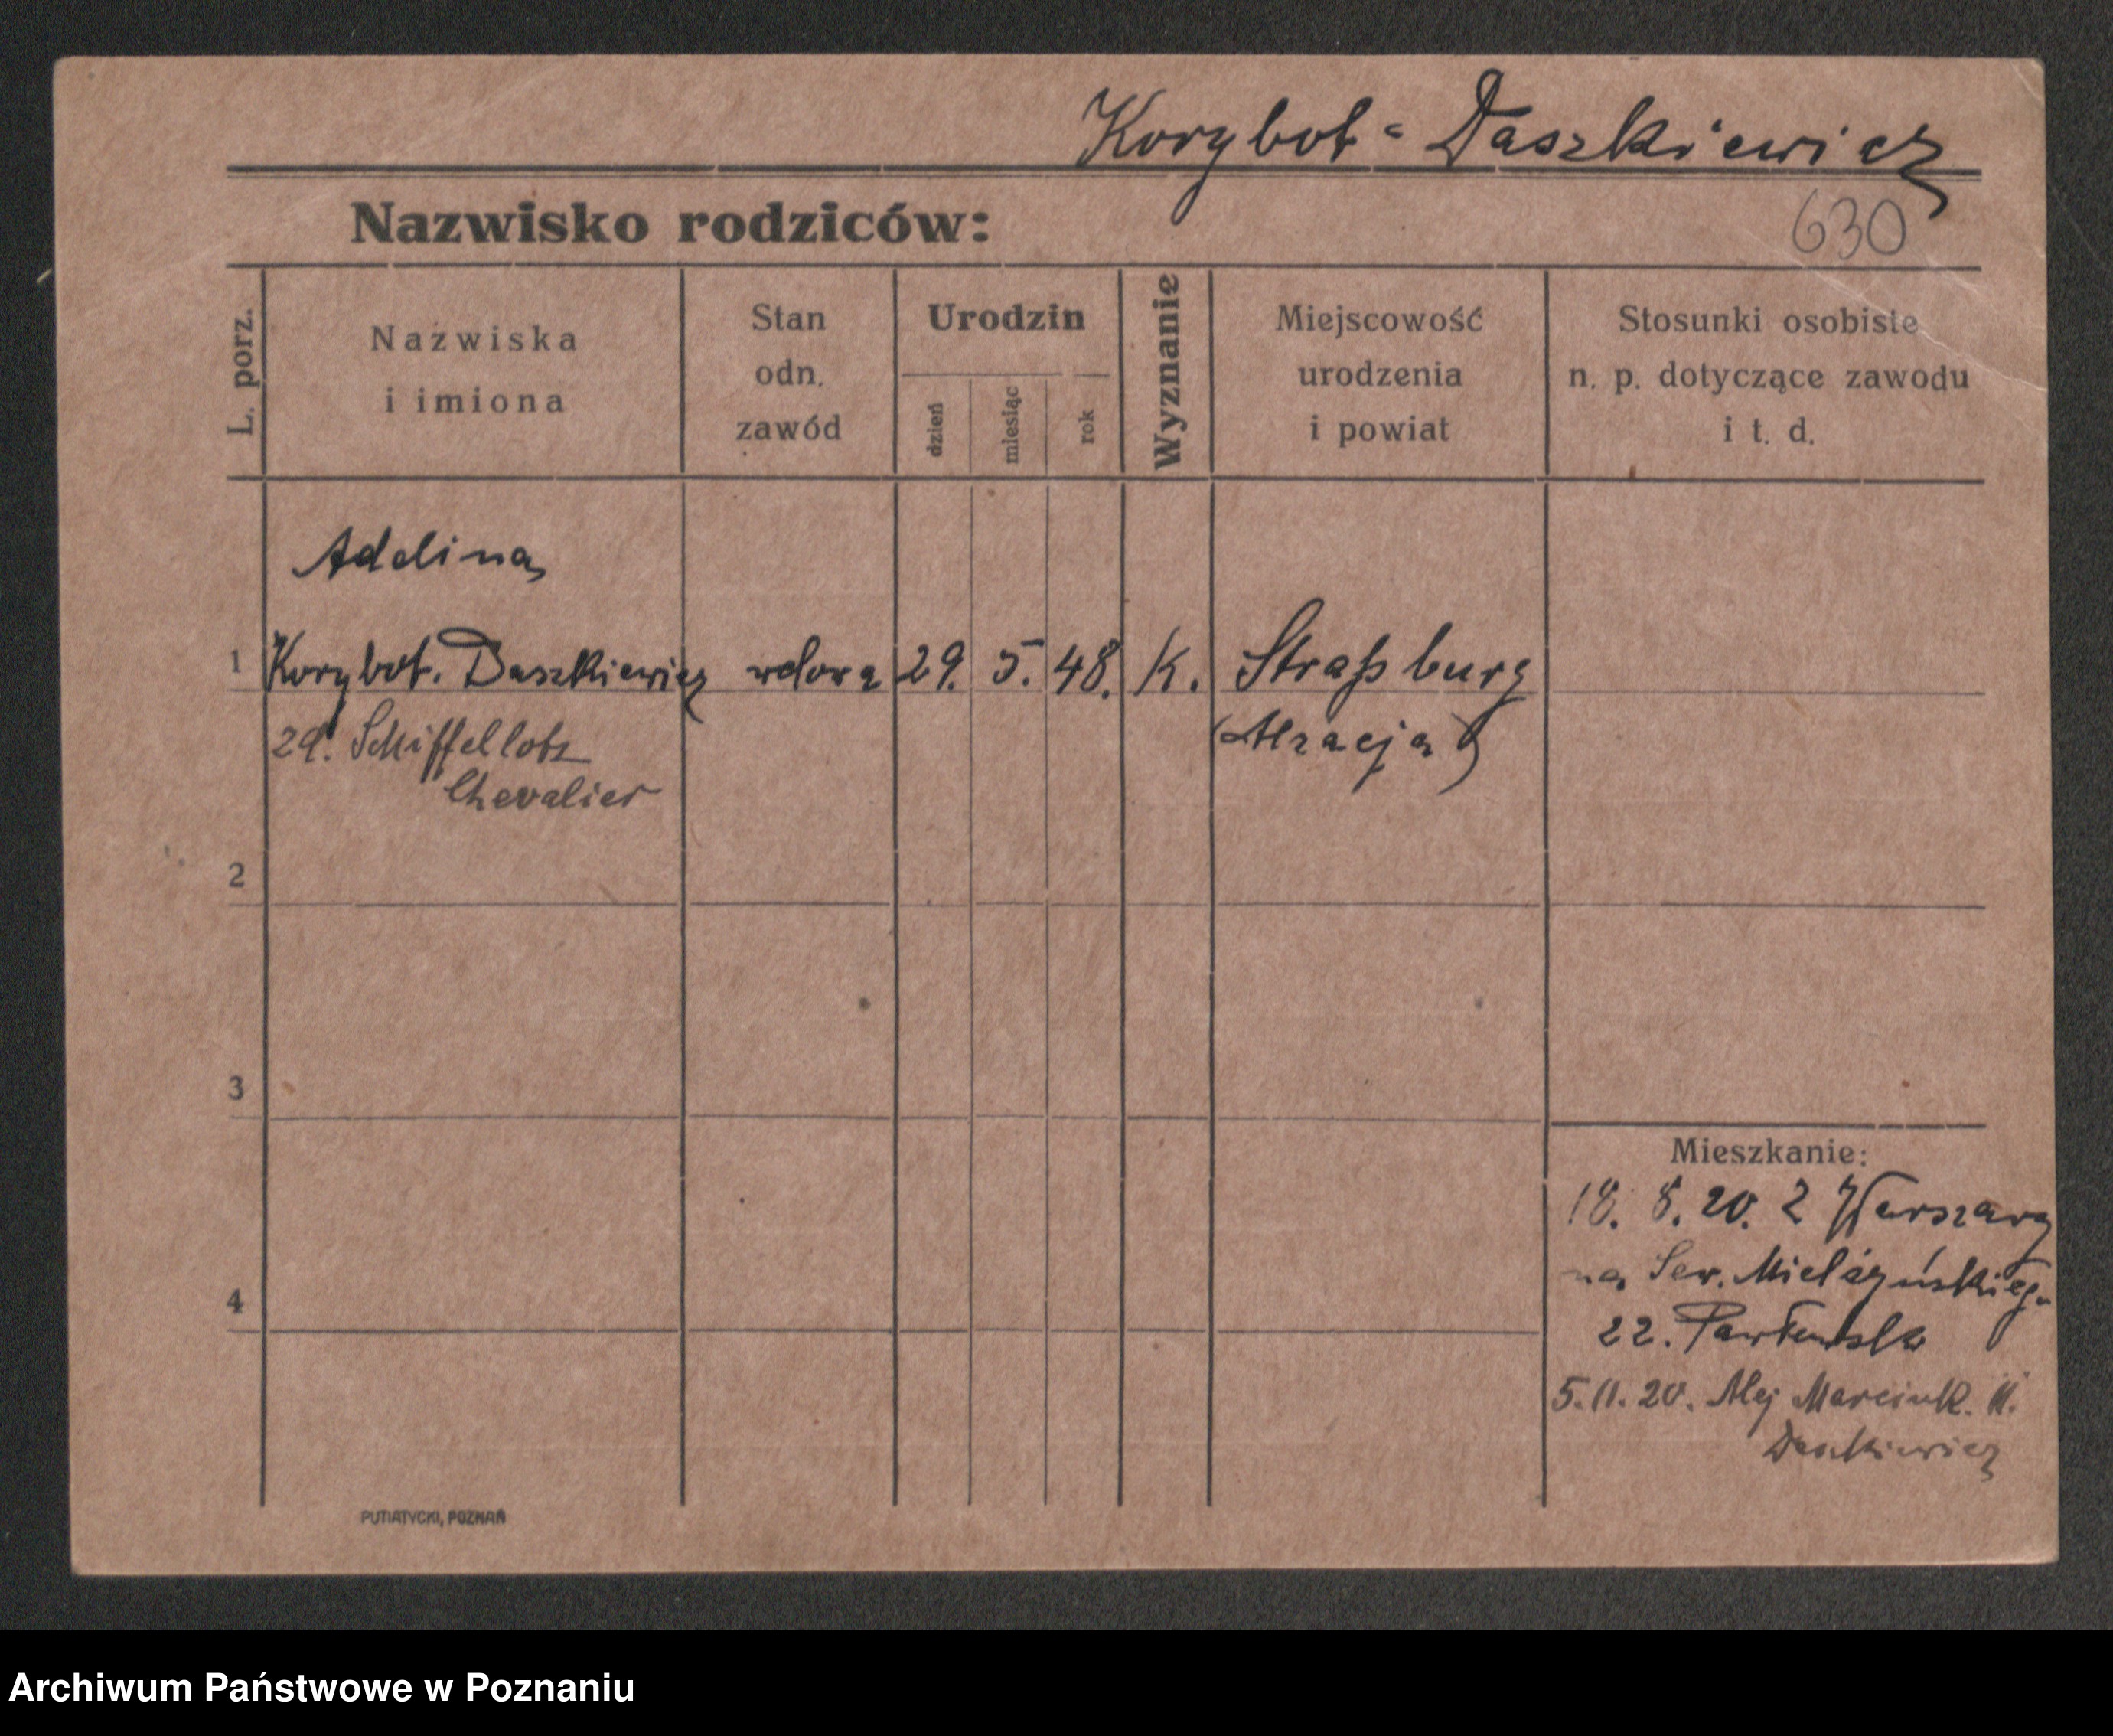 Korybot-Daszkiewicz
Nazwisko rodziców:
630
L. porz.
Nazwiska
i imiona
Stan
odn.
zawód
Urodzin
dzień
miesiąc
rok
Wyznanie
Miejscowość
urodzenia
i powiat
Stosunki osobiste
n. p. dotyczące zawodu
i t. d.
Adelina
1 Korybot. Daszkiewicz wdowa 29. 5. 48. K. Straßburg
Schiffellotz (Alzacja)
Chevalier
2
3
4
Mieszkanie:
18. 8. 20. z Warszawy
na Sew. Mielżyńskiego
22.
5.11.20. Alej Marcink. 11.
Daszkiewicz
PUTIATYCKI, POZNAŃ
Archiwum Państwowe w Poznaniu